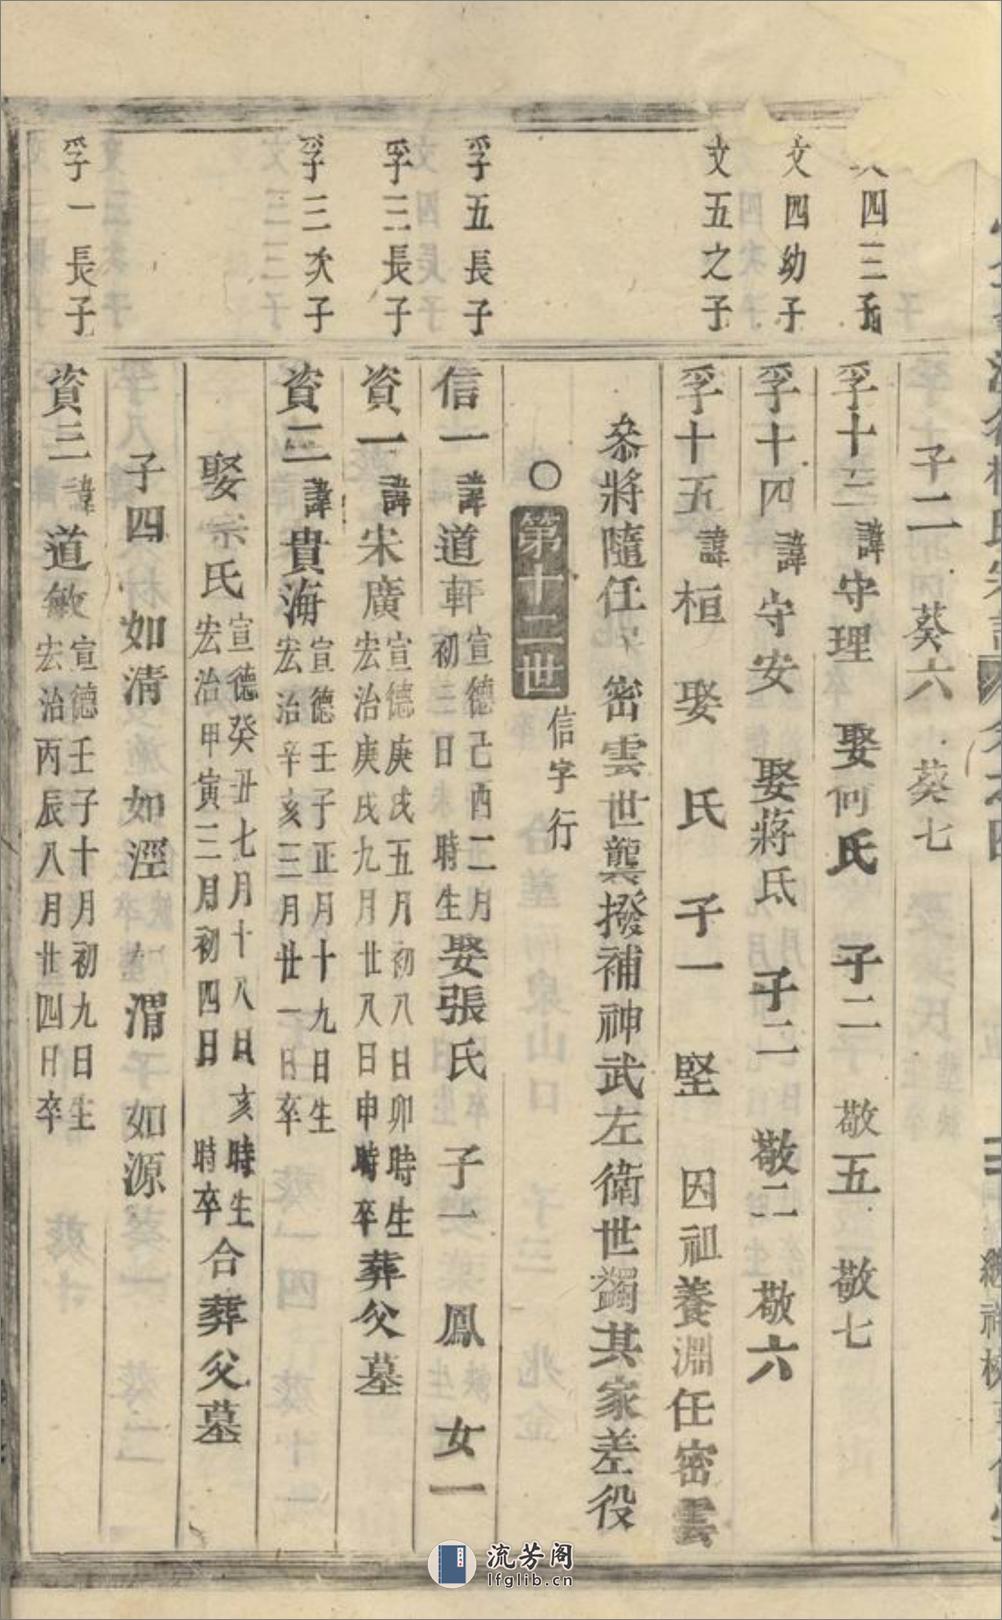 子二　葵六　葵七
四三子
孚十三諱守理　娶何氏　子二　敬五　敬七
文四幼子
孚十四諱守安　娶蔣氏　子二　敬二　敬六
文五之子
孚十五諱桓　娶　氏　子一　堅　因祖養淵任密雲
叅將隨任　密雲世襲撥補神武左衛世蠲其家差役
○第十二世 信字行
孚五長子
信一諱道軒 宣德己酉二月初三日　時生 娶張氏　子一　鳳　女一
孚三長子
資一諱宋廣 宣德庚戌五月初八日卯時生 宏治庚戌九月廿八日申時卒 葬父墓
孚三次子
資二諱貴海 宣德壬子正月十九日生 宏治辛亥三月廿一日卒
娶宗氏 宣德癸丑七月十八日亥時生 宏治甲寅三月初四日　時卒 合葬父墓
子四　如清　如涇　如渭　如源
孚一長子
資三諱道敏 宣德壬子十月初九日生 宏治丙辰八月廿四日卒
流芳阁
lfglib.cn